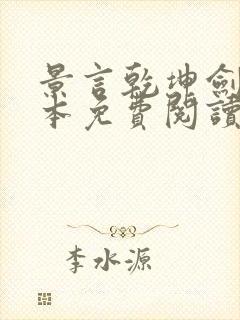 景言乾坤劍
本免費閱讀
李水源